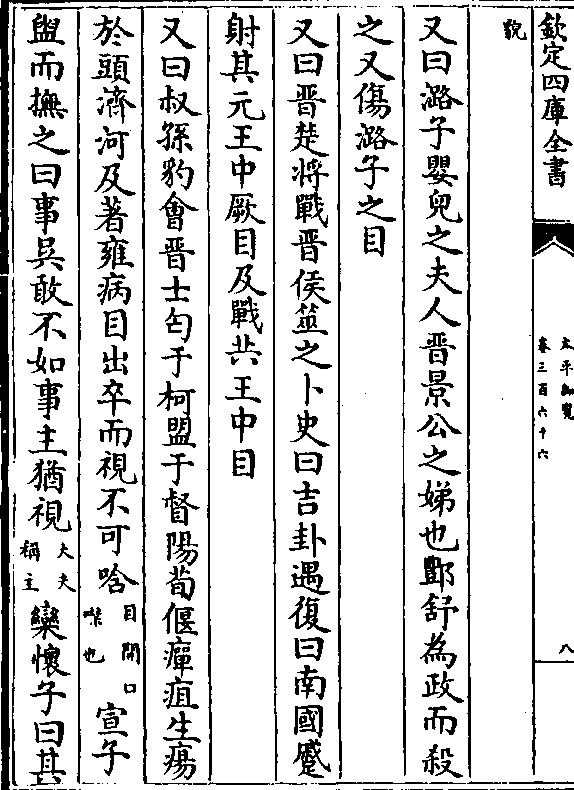 欽定四庫全書
太平御覽
卷三百六十六
八
貌
又曰潞子嬰兒之夫人晉景公之娣也酆舒為政而殺
之又傷潞子之目
又曰晉楚將戰晉侯筮之卜史曰吉卦遇復曰南國蹙
射其元王中厥目及戰共王中目
又曰叔孫豹會晉士匄于柯盟于督陽荀偃癉疽生瘍
於頭濟河及著雍病目出卒而視不可唅目開口噤也宣子
盥而撫之曰事吳敢不如事主猶視大夫稱主欒懷子曰其